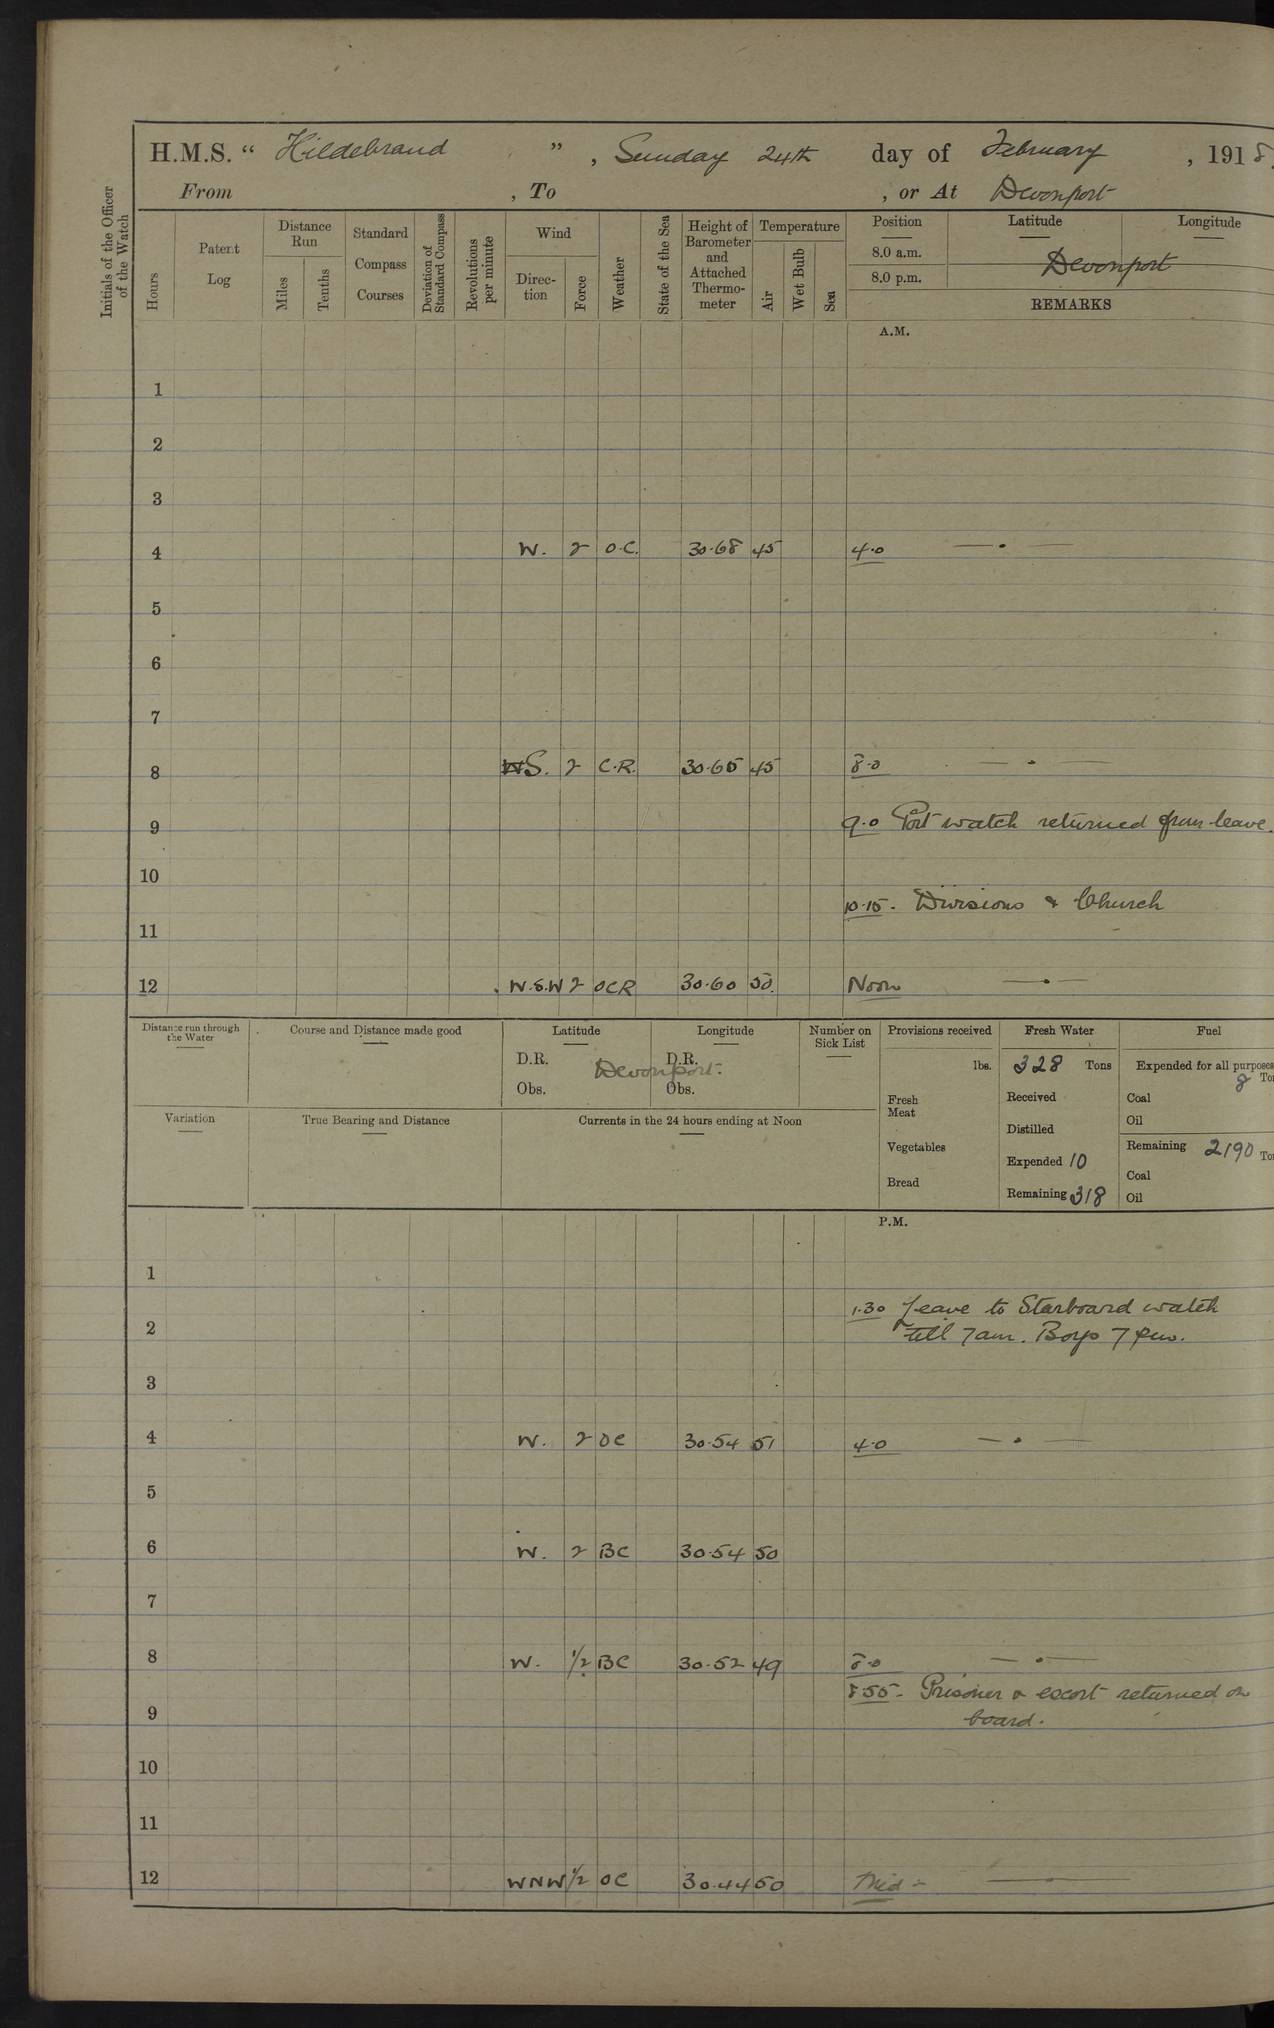 H.M.S. “ Hildebrand ” , Sunday 24th day of February , 1918.
From , To , or At Devonport
Initials of the Officer of the Watch
Hours
Patent Log
Distance Run
Miles
Tenths
Standard Compass Courses
Deviation of Standard Compass
Revolutions per minute
Wind
Direc-tion
Force
Weather
State of the Sea
Height of Barometer and Attached Thermo-meter
Temperature
Air
Wet Bulb
Sea
Position Latitude Longitude
8.0 a.m.
8.0 p.m.
Devonport
REMARKS
A.M.
1
2
3
4 W. 2 O.C. 30.68 45 4.0 — . —
5
6
7
8 W S. 2 C.R. 30.65 45 8.0 — . —
9 9.0 Port watch returned from leave.
10
10.15. Divisions & Church
11
12 W.S.W 2 OCR 30.60 50. Noon — . —
Distance run through the Water
Course and Distance made good
Latitude
D.R.
Obs.
Longitude
D.R.
Obs.
Devonport.
Number on Sick List
Provisions received
lbs.
Fresh Meat
Vegetables
Bread
Fresh Water
328 Tons
Received
Distilled
Expended 10
Remaining 318
Fuel
Expended for all purposes
8 To
Coal
Oil
Remaining 2190 To
Coal
Oil
Variation
True Bearing and Distance
Currents in the 24 hours ending at Noon
P.M.
1
1.30 Leave to Starboard watch
2 till 7am. Boys 7 pm.
3
4 W. 2 OC 30.54 51 4.0 — . —
5
6 W. 2 BC 30.54 50
7
8 W. 1/2 BC 30.52 49 8.0 — . —
8.55 - Prisoner & escort returned on
9 board.
10
11
12 WNW 1/2 OC 30.44 50 Mid - — . —